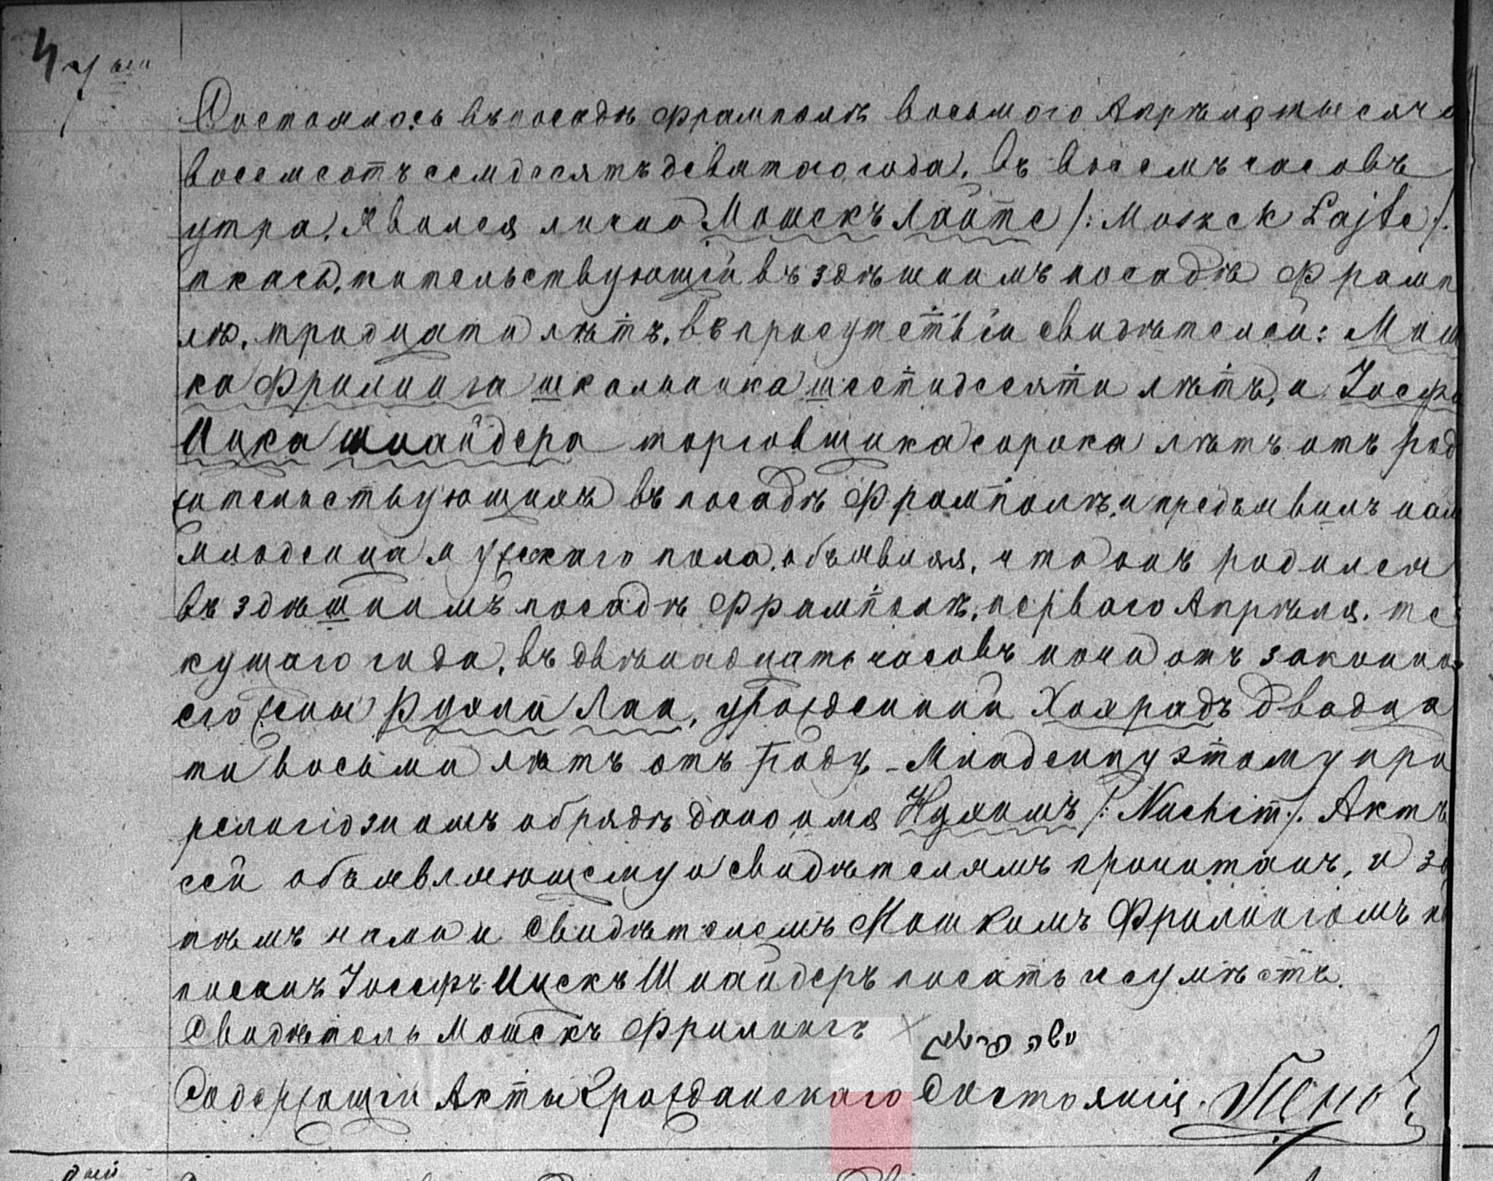 47ый
Состоялось въ посадѣ Фрамполѣ восьмого Апрѣля тысяча
восемсотъ семдесятъ девятаго года, въ восемъ часовъ
утра. Явился лично Мошекъ Лайте /: Moszek Lajte :/
ткачь, жительствующій въ здѣшнимъ посадѣ Фрамп
лѣ, тридцати лѣтъ, въ присутствіи свидѣтелей: Мош
ка Фрилинга школьника шестидесяти лѣтъ, и Іосфа
Ицка Шнайдера торговщика сорока лѣтъ отъ род
жительствующихъ въ посадѣ Фрамполѣ, и предъявилъ нам
младенца мужскаго пола, объявляя, что онъ родился
въ здѣшнимъ посадѣ Фрамполѣ, первого Апрѣля, те
кущаго года, въ двѣнадцать часовъ ночи отъ законной
его жены Рухли Лаи, урожденной Хахрадъ двадца
ти восьми лѣтъ отъ роду. Младенцу этому при
религіозномъ обрядѣ дано имя Нухимъ /: Nuchim :/. Актъ
сей объявляющему и свидѣтелямъ прочитанъ, и за
тѣмъ нами и свидѣтелемъ Мошкомъ Фрилингомъ под
писанъ Іосефъ Ицекъ Шнайдеръ писать не умѣетъ.
Свидѣтель Мошекъ Фрилингъ
Содержащій Акты Гражданскаго Состоянія.